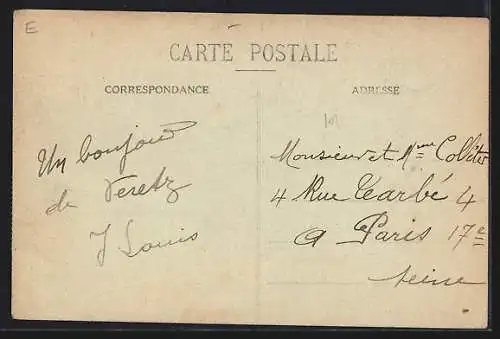 E
CARTE POSTALE
CORRESPONDANCE
Un bonjour
de Veretz
J Louis
ADRESSE
Monsieur et Mme
4 Rue Tarbé 4
a Paris 17e
Seine